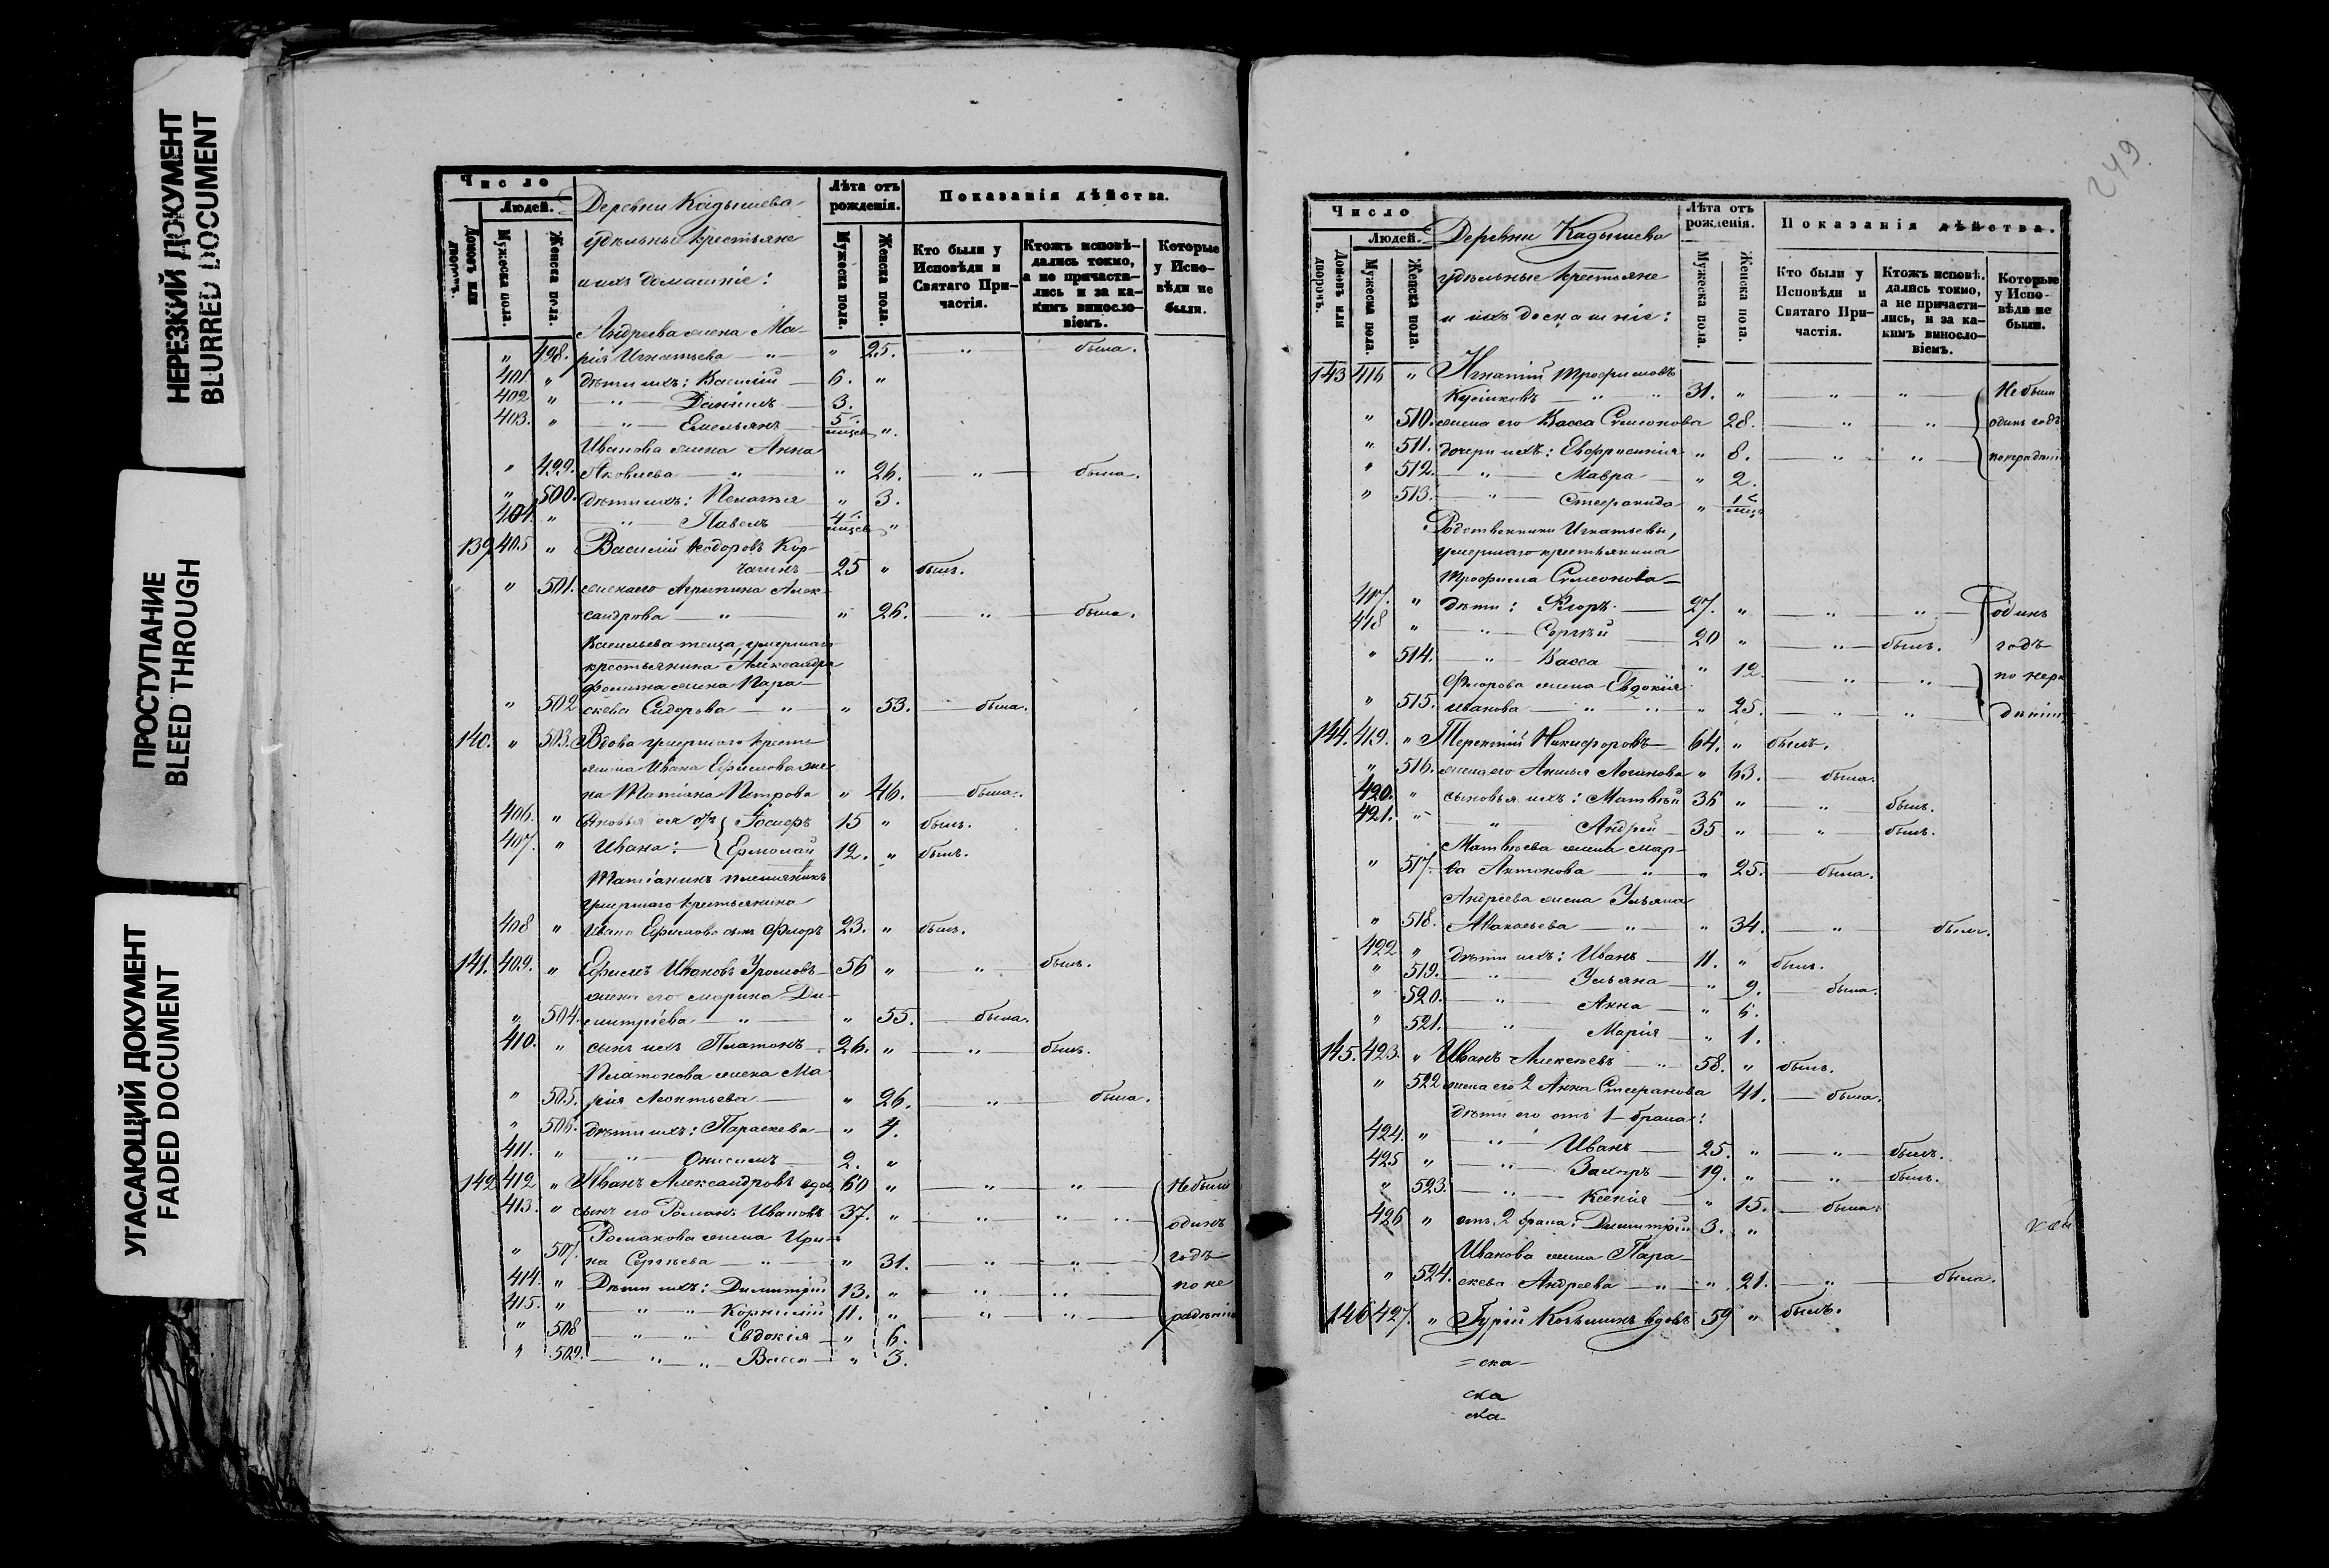 НЕРЕЗКИЙ ДОКУМЕНТ
BLURRED DOCUMENT
ПРОСТУПАНИЕ
BLEED THROUGH
УГАСАЮЩИЙ ДОКУМЕНТ
FADED DOCUMENT
Число
Людей.
Домовъ или дворовъ.
Мужеска пола.
Женска пола.
Деревни Кадышева
удѣльные крестьяне
и ихъ домашніе:
Лѣта отъ рожденія.
Мужеска пола.
Женска пола.
Показанія дѣйства.
Кто были у Исповѣди и Святаго Причастія.
Ктожъ исповѣдались токмо, а не причастились и за какимъ винословіемъ.
Которые у Исповѣди не были.
Андреева жена Ма-
" 498. рія Игнатьева — " — " 25. " была.
401. " дѣти ихъ: Василій 6. "
402 " — " — Даніилъ 3.
403. " — " — Емельянъ 5 мѣсяц. ".
Иванова жена Анна
" 499. Яковлева — " — " 26. — " — была.
" 500. дѣти ихъ: Пелагея " 3.
404. " — " — Павелъ 4 мѣсяц. "
139 405 " Василій Ѳеодоровъ Кор-
чагинъ 25 " былъ.
" 501. жена его Агрипина Алек-
сандрова — " — " 26. — " — была.
Васильева теща, умершаго
крестьянина Александра
Фомина жена Пара-
" 502 скева Сидорова — " — " 53. — была.
140. " 503. Вдова умершаго кресть-
янина Ивана Ефимова же-
на Татіана Петрова " 46. — была.
406. " Сыновья ея отъ Іосифъ 15 " былъ.
407. " Ивана: — Ермолай 12. " былъ.
Татіанинъ племянникъ
умершаго крестьянина
408 " Ивана Ефимова сынъ Флоръ 23. " былъ.
141. 409. " Ефимъ Ивановъ 56 " — " — былъ.
жена его Марина Ди-
" 504. митріева — " — " 55. — была.
410. " сынъ ихъ Платонъ 26. " — " — былъ.
Платонова жена Ма
" 505. рія Леонтьева — " 26. — " — была.
" 506. дѣти ихъ: Параскева " 4.
411. " — " — Онисимъ 2. "
142 412 " Иванъ Александровъ вдов. 60 " — " — " — Не были
413. " сынъ его Романъ Ивановъ 37. " — " — " — одинъ
Романова жена Ири-
" 507. на Сергѣева — " — " 31. — " — " — годъ
414. " Дѣти ихъ: Димитрій 13. " " " по не
415. " — " — " Корнилій 11. " — " — " — радѣнію
" 508 — " — " Евдокія " 6.
" 509. — " — " Васса " 3.
249
Число
Людей.
Домовъ или дворовъ.
Мужеска пола.
Женска пола.
Деревни Кадышева
удѣльные крестьяне
и ихъ домашніе:
Лѣта отъ рожденія.
Мужеска пола.
Женска пола.
Показанія дѣйства.
Кто были у Исповѣди и Святаго Причастія.
Ктожъ исповѣдались токмо, а не причастились, и за какимъ винословіемъ.
Которые у Исповѣди не были.
143 416 " Игнатій Трофимовъ
31. " — " — " Не были
" 510. жена его Васса Симеонова 28. — " — " одинъ годъ
" 511. дочери ихъ: Евфросинія " 8. — " — " по нерадѣнію
" 512. — " — Мавра " 2.
" 513. — " — Стефанида " 1 мѣсяц.
Родственники Игнатьевы,
умершаго крестьянина
Трофима Симеонова
417. " дѣти: Флоръ 27. " — " — " одинъ
418 " — " — Сергѣй 20 " — " — былъ. годъ
" 514. — " — Васса " 12. — " — " по нера
Флорова жена Евдокія
" 515. Иванова — " — " 25. — " — " дѣнію
144. 419. " Терентій Никифоровъ 64. " былъ.
" 516. жена его Анисья Логинова " 63. — была.
420. " сыновья ихъ: Матвѣй 36 " — " былъ.
421. " — " — Андрей 35 " — " былъ.
Матвѣева жена Мар-
" 517. ѳа Антонова — " — " 25. — была.
Андреева жена Ульяна
" 518. Аѳанасьева — " — " 34. — " — была.
422 " дѣти ихъ: Иванъ 11. " былъ.
" 519. — " — Ульяна " 9. — была.
" 520. — " — Анна " 6.
" 521. — " — Марія " 1.
145. 423. " Иванъ Алексѣевъ — " 58. " былъ.
" 522 жена его 2 Анна Стефанова 41. — была.
дѣти его отъ 1 брака:
424. " — " — Иванъ 25. " — " былъ.
425 " — " — Захаръ 19. " — " былъ.
" 523. — " — Ксенія " 15. — была.
426 " отъ 2 брака: Димитрій 3. "
Иванова жена Пара-
" 524. скева Андреева — " — " 21. — " — была.
146 427. " Гурій Козьминъ вдовъ 59 " былъ.
= ска —
ска
ска